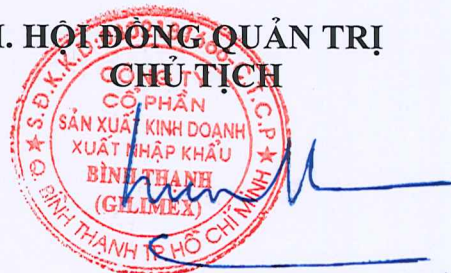 HỘI ĐỒNG QUẢN TRỊ
CHỦ TỊCH
CÔNG TY
CỔ PHẦN
SẢN XUẤT KINH DOANH
XUẤT NHẬP KHẨU
BÌNH THẠNH
(GILIMEX)
Q. BÌNH THẠNH TP HỒ CHÍ MINH